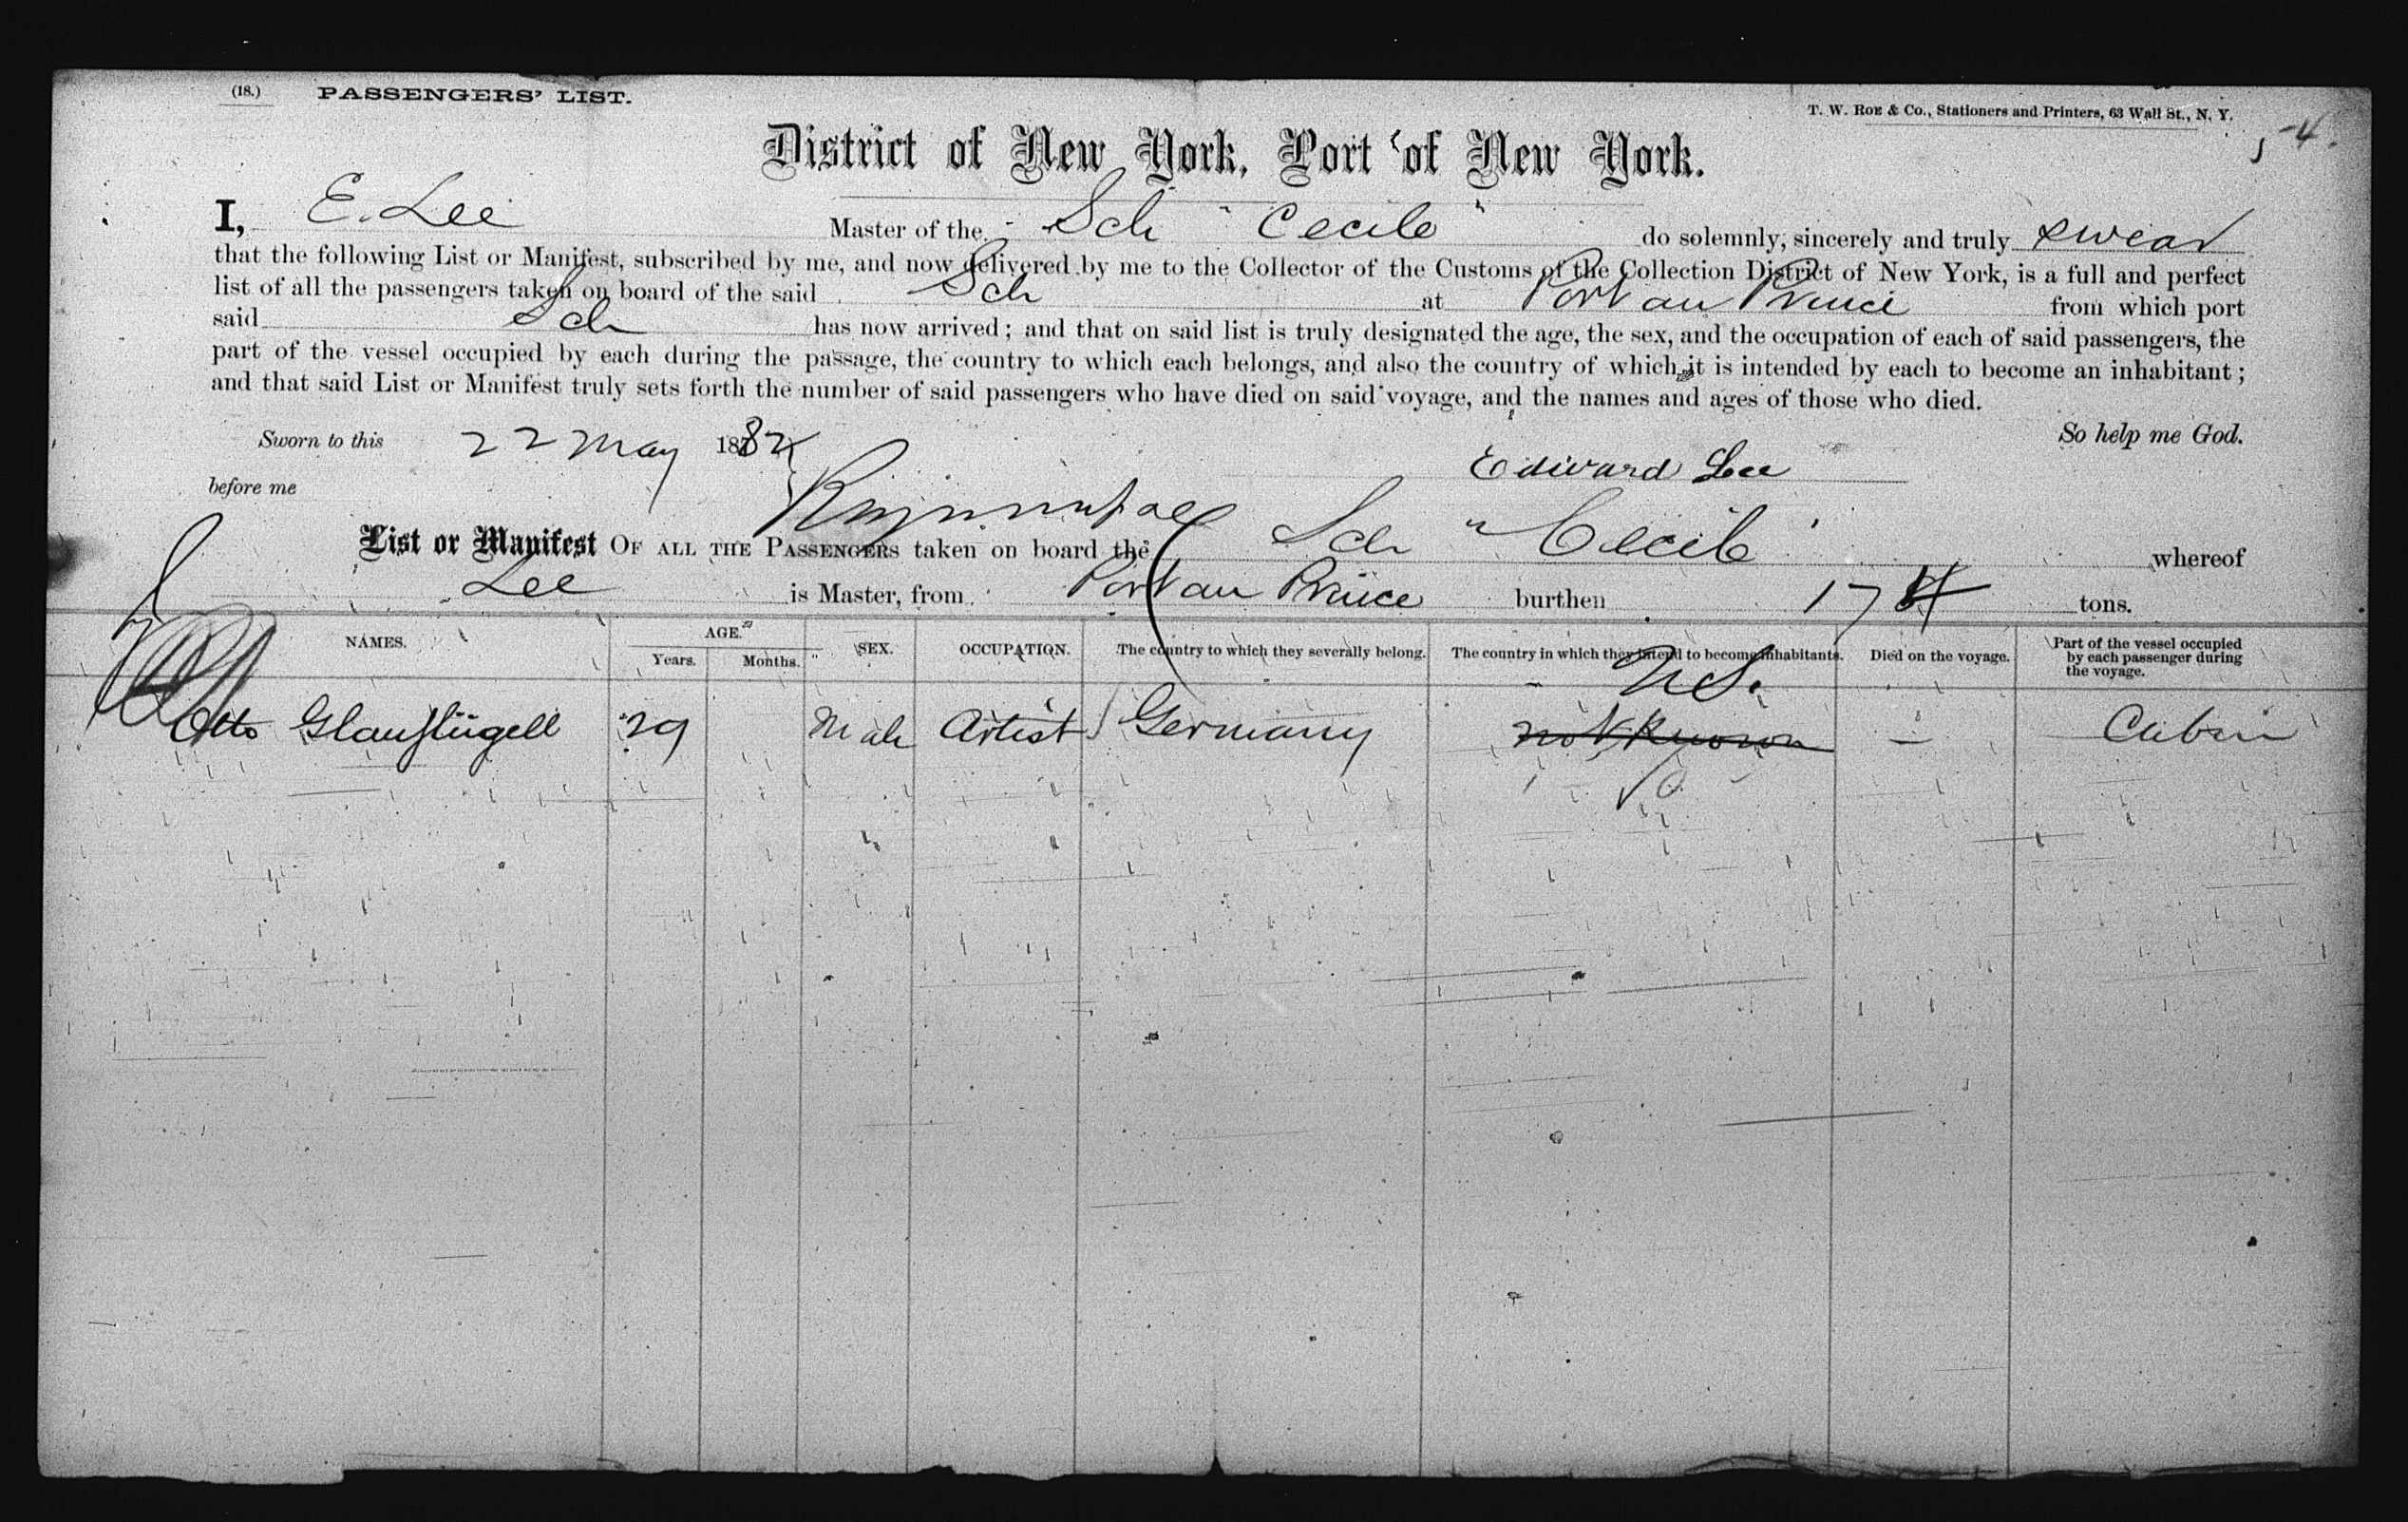 (18.) PASSENGERS' LIST.
T. W. ROE & Co., Stationers and Printers, 63 Wall St., N. Y.
54.
District of New York, Port of New York.
I, E. Lee Master of the Sch "Cecile" do solemnly, sincerely and truly swear
that the following List or Manifest, subscribed by me, and now delivered by me to the Collector of the Customs of the Collection District of New York, is a full and perfect
list of all the passengers taken on board of the said Sch at Port au Prince from which port
said Sch has now arrived; and that on said list is truly designated the age, the sex, and the occupation of each of said passengers, the
part of the vessel occupied by each during the passage, the country to which each belongs, and also the country of which it is intended by each to become an inhabitant;
and that said List or Manifest truly sets forth the number of said passengers who have died on said voyage, and the names and ages of those who died.
Sworn to this 22 May 1882 So help me God.
Edward Lee
before me
List or Manifest OF ALL THE PASSENGERS taken on board the Sch "Cecile" whereof
Lee is Master, from Port au Prince burthen 174 tons.
NAMES. AGE. Years. Months. SEX. OCCUPATION. The country to which they severally belong. The country in which they intend to become inhabitants. Died on the voyage. Part of the vessel occupied by each passenger during the voyage.
U.S.
Otto Glanflügell 29 Male Artist Germany not known — Cabin